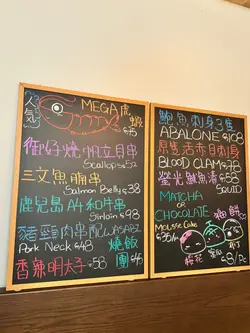 人氣
MEGA 虎蝦
$75
御好燒帆立貝串
Scallops
三文魚腩串
Salmon Belly $38
鹿兒島 A4 和牛串
Sirloin $98
豬頸肉串配WASABI
Pork Neck $48
燒飯團
$45
香辣明太子 $58
鮑魚刺身 3隻
ABALONE $108
原隻活赤貝刺身
BLOOD CLAM $98
螢光魷魚漬 $58
SQUID
MATCHA
OR
CHOCOLATE
Mousse Cake
$35/
$8/Pc